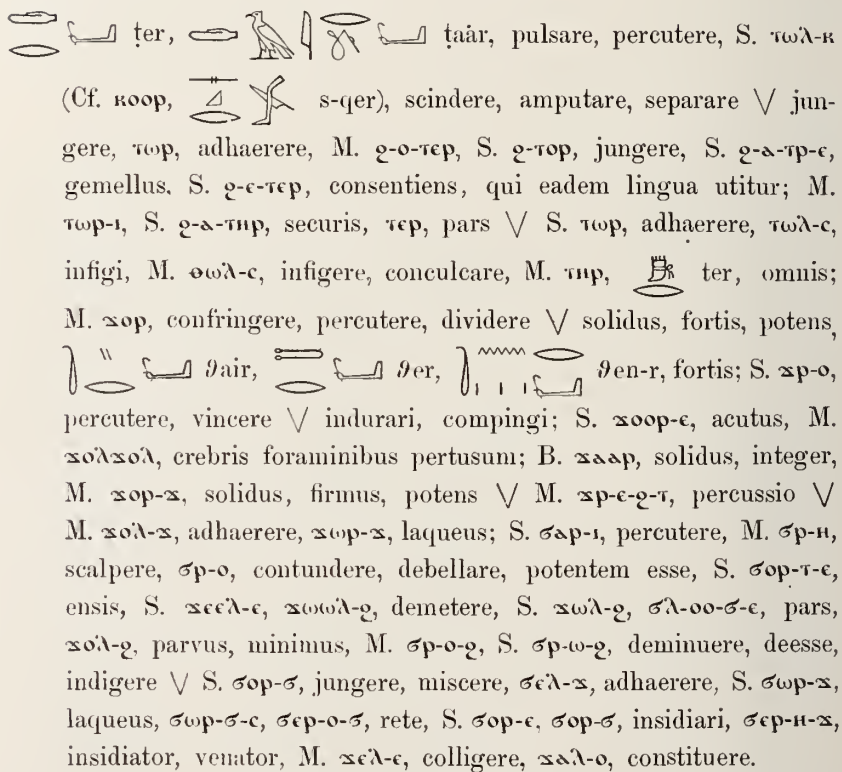 ṭer, ṭaȧr, pulsare, percutere, S. ⲧⲱⲗ-ⲕ
(Cf. ⲕⲟⲟⲣ, s-qer), scindere, amputare, separare \/ jun-
gere, ⲧⲱⲣ, adhaerere, M. ϩ-ⲟ-ⲧⲉⲣ, S. ϩ-ⲧⲟⲣ, jungere, S. ϩ-ⲁ-ⲧⲣ-ⲉ,
gemellus. S. ϩ-ⲉ-ⲧⲉⲣ, consentiens, qui eadem lingua utitur; M.
ⲧⲱⲣ-ⲓ, S. ϩ-ⲁ-ⲧⲏⲣ, securis, ⲧⲉⲣ, pars \/ S. ⲧⲱⲣ, adhaerere, ⲧⲱⲗ-ⲥ,
infigi, M. ⲑⲱⲗ-ⲥ, infigere, conculcare, M. ⲧⲏⲣ, ter, omnis;
M. ϫⲟⲣ, confringere, percutere, dividere \/ solidus, fortis, potens,
ϑair, ϑer, ϑen-r, fortis; S. ϫⲣ-ⲟ,
percutere, vincere \/ indurari, compingi; S. ϫⲟⲟⲣ-ⲉ, acutus, M.
ϫⲟⲗϫⲟⲗ, crebris foraminibus pertusum; B. ϫⲁⲁⲣ, solidus, integer,
M. ϫⲟⲣ-ϫ, solidus, firmus, potens \/ M. ϫⲣ-ⲉ-ϩ-ⲧ, percussio \/
M. ϫⲟⲗ-ϫ, adhaerere, ϫⲱⲣ-ϫ, laqueus; S. ϭⲁⲣ-ⲓ, percutere, M. ϭⲣ-ⲏ,
scalpere, ϭⲣ-ⲟ, contundere, debellare, potentem esse, S. ϭⲟⲣ-ⲧ-ⲉ,
ensis, S. ϫⲉⲉⲗ-ⲉ, ϫⲱⲱⲗ-ϩ, demetere, S. ϫⲱⲗ-ϩ, ϭⲗ-ⲟⲟ-ϭ-ⲉ, pars,
ϫⲟⲗ-ϩ, parvus, minimus, M. ϭⲣ-ⲟ-ϩ, S. ϭⲣ-ⲱ-ϩ, deminuere, deesse,
indigere \/ S. ϭⲟⲣ-ϭ, jungere, miscere, ϭⲉⲗ-ϫ, adhaerere, S. ϭⲱⲣ-ϫ,
laqueus, ϭⲱⲣ-ϭ-ⲥ, ϭⲉⲣ-ⲟ-ϭ, rete, S. ϭⲟⲣ-ⲉ, ϭⲟⲣ-ϭ, insidiari, ϭⲉⲣ-ⲏ-ϫ,
insidiator, venator, M. ϫⲉⲗ-ⲉ, colligere, ϫⲁⲗ-ⲟ, constituere.